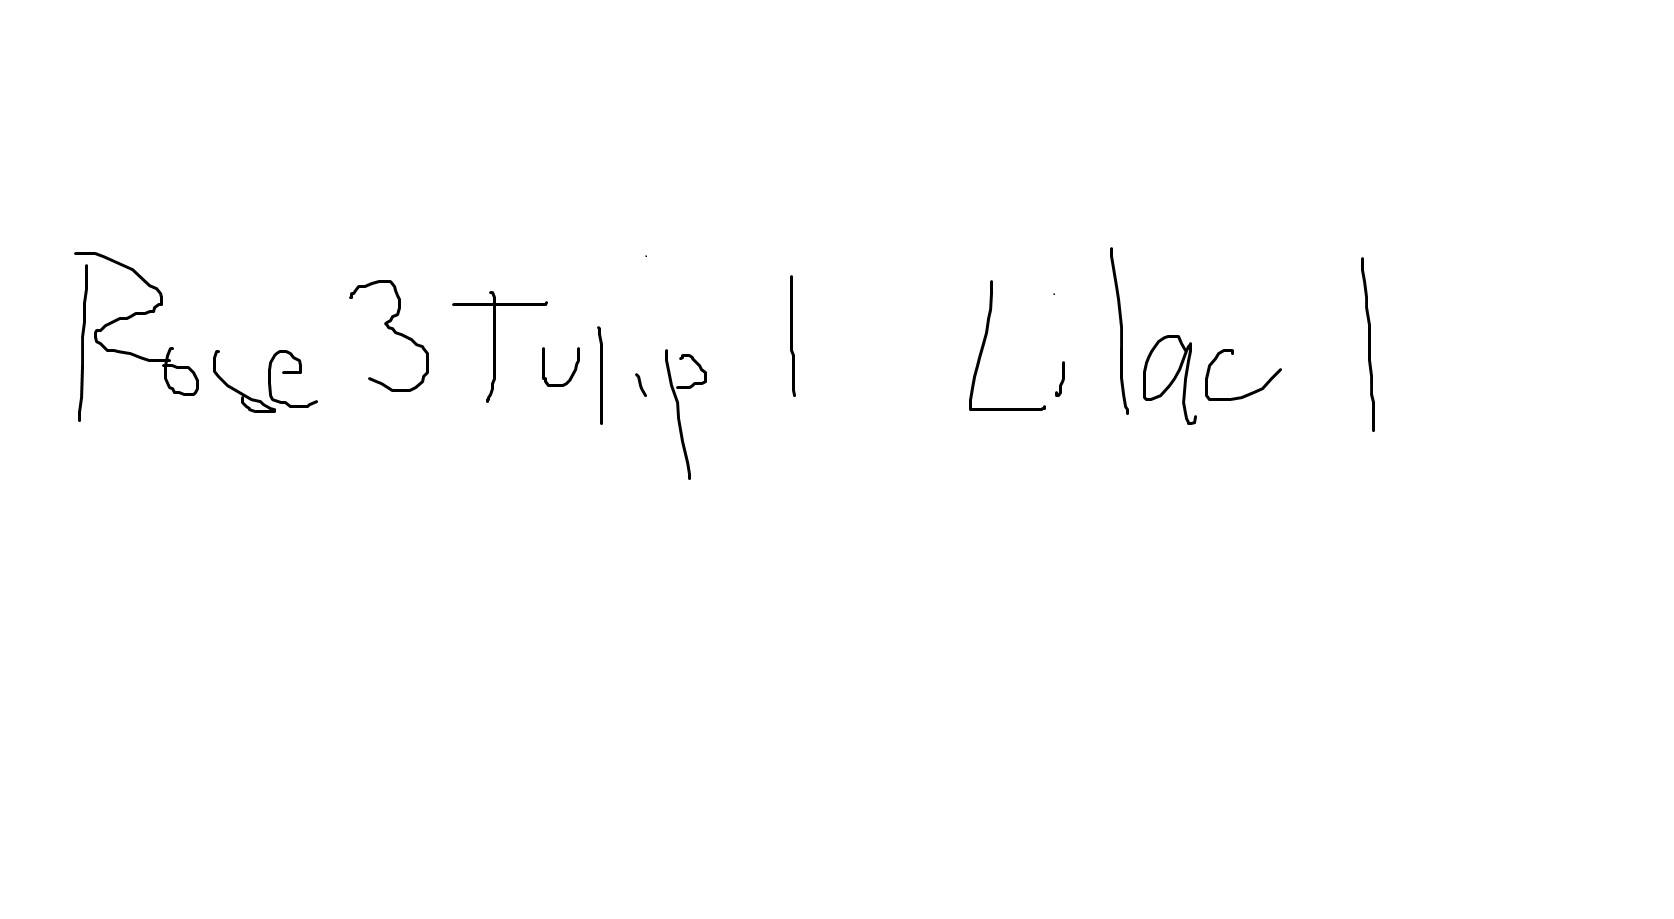 Rose 3 Tulip 1 Lilac 1